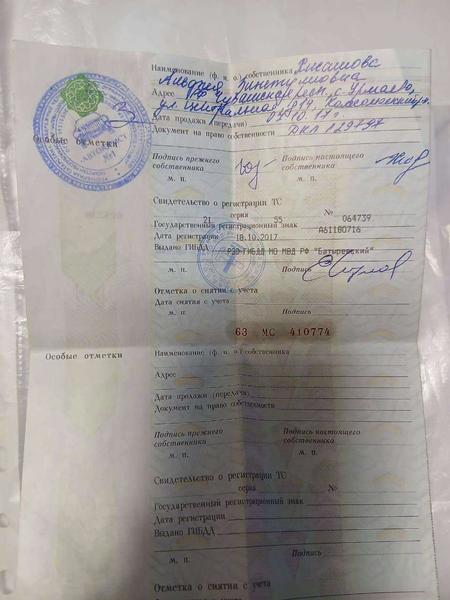 Наименование (ф. и. о.) собственника Хисамова
Альфия
Адрес РФ Чувашская респ., с. Урмаево,
ул. Центральная Комсомольский
Дата продажи (передачи) 04.10.17г.
Документ на право собственности ДКП
Особые отметки
АВТО
№1
Подпись прежнего собственника
Подпись настоящего собственника
М. П.
М. П.
Свидетельство о регистрации ТС
21 серия 55 № 064739
Государственный регистрационный знак А611ВО716
Дата регистрации 18.10.2017
Выдано ГИБДД РЭО ГИБДД МО МВД РФ "Батыревский"
М. П. Подпись
Отметка о снятии с учета
Дата снятия с учета
М. П. Подпись
63 МС 410774
Особые отметки
Наименование (ф. и. о.) собственника
Адрес
Дата продажи (передачи)
Документ на право собственности
Подпись прежнего собственника
Подпись настоящего собственника
М. П.
М. П.
Свидетельство о регистрации ТС
серия №
Государственный регистрационный знак
Дата регистрации
Выдано ГИБДД
М. П. Подпись
Отметка о снятии с учета